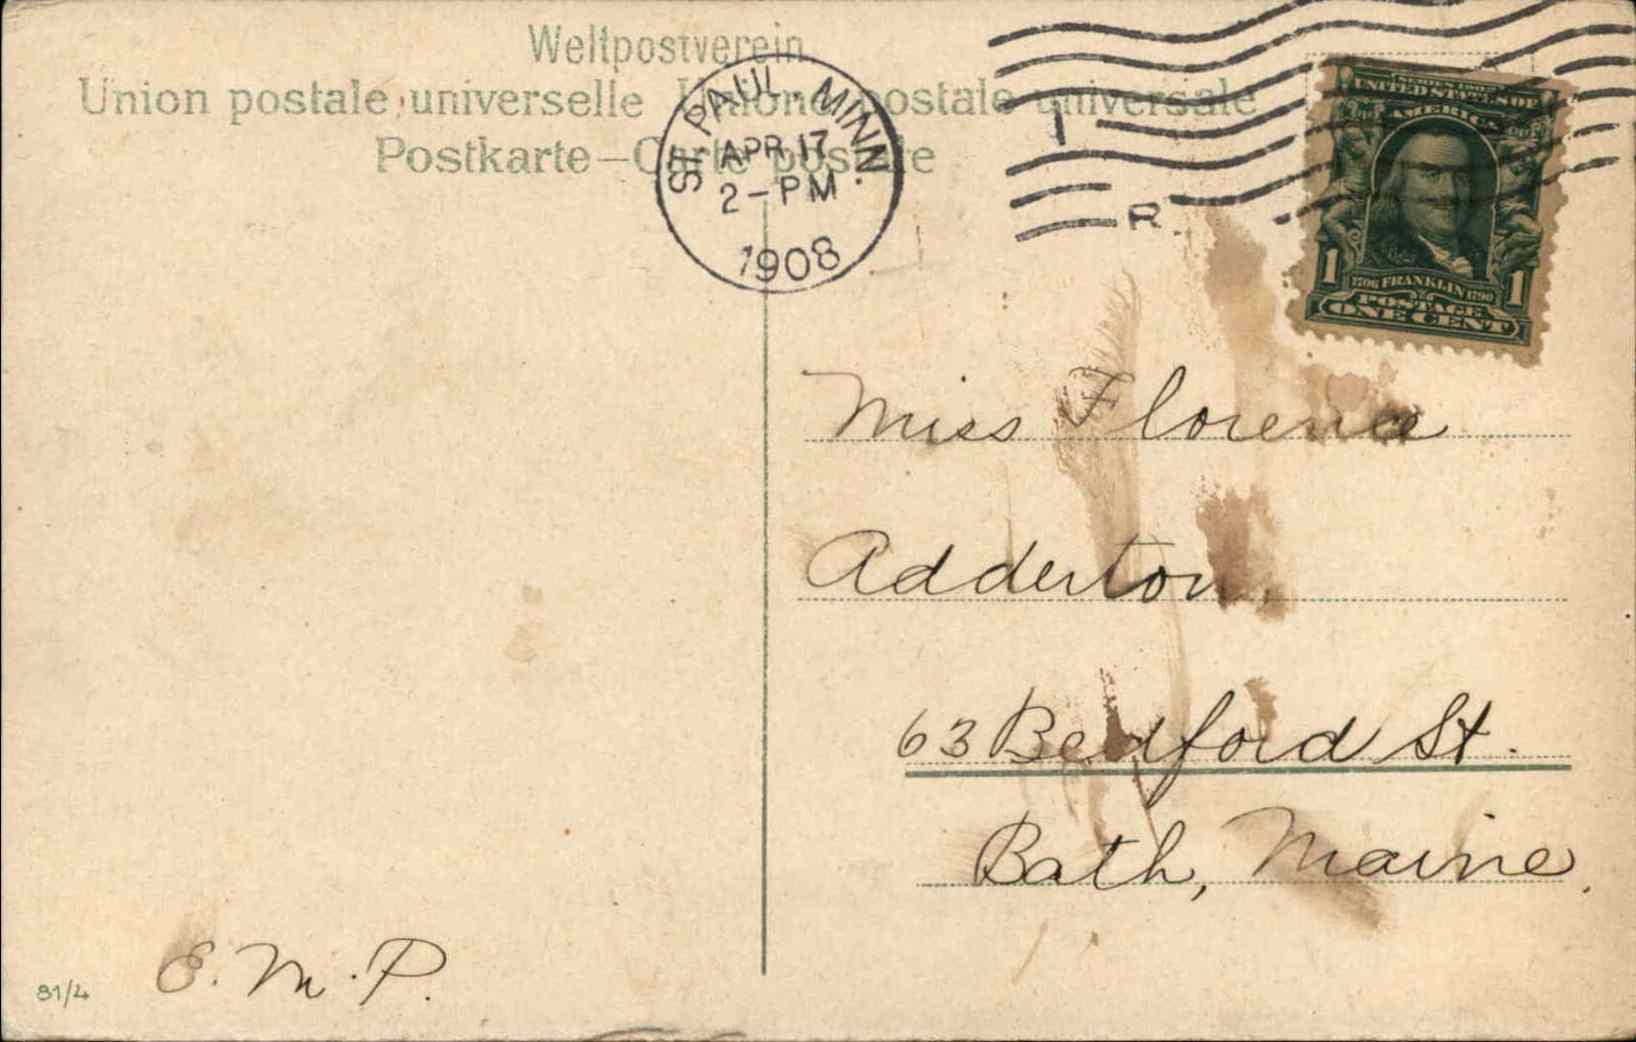 Weltpostverein
Union postale universelle Unione postale universale
Postkarte—Carte postale
ST. PAUL, MINN.
APR 17
2-PM
1908
1
R.
SERIES 1902
UNITED STATES OF
AMERICA
1 1706 FRANKLIN 1790 1
POSTAGE
ONE CENT
Miss Florence
Adderton,
63 Bedford St.
Bath, Maine.
E. M. P.
81/4